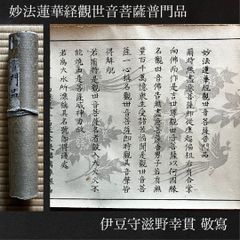 妙法蓮華経觀世音菩薩普門品
妙法蓮華經觀世音菩薩普門品
爾時無盡意菩薩即從座起偏袒右肩合掌
向佛而作是言世尊觀世音菩薩以何因緣
名觀世音佛告無盡意菩薩善男子若有無
量百千萬億衆生受諸苦惱聞是觀世音菩
薩一心稱名觀世音菩薩即時觀其音聲皆
得解脱
若有持是觀世音菩薩名者設入大火火不
能燒由是菩薩威神力故
若為大水所漂稱其名號即得淺處
門品
伊豆守滋野幸貫 敬寫